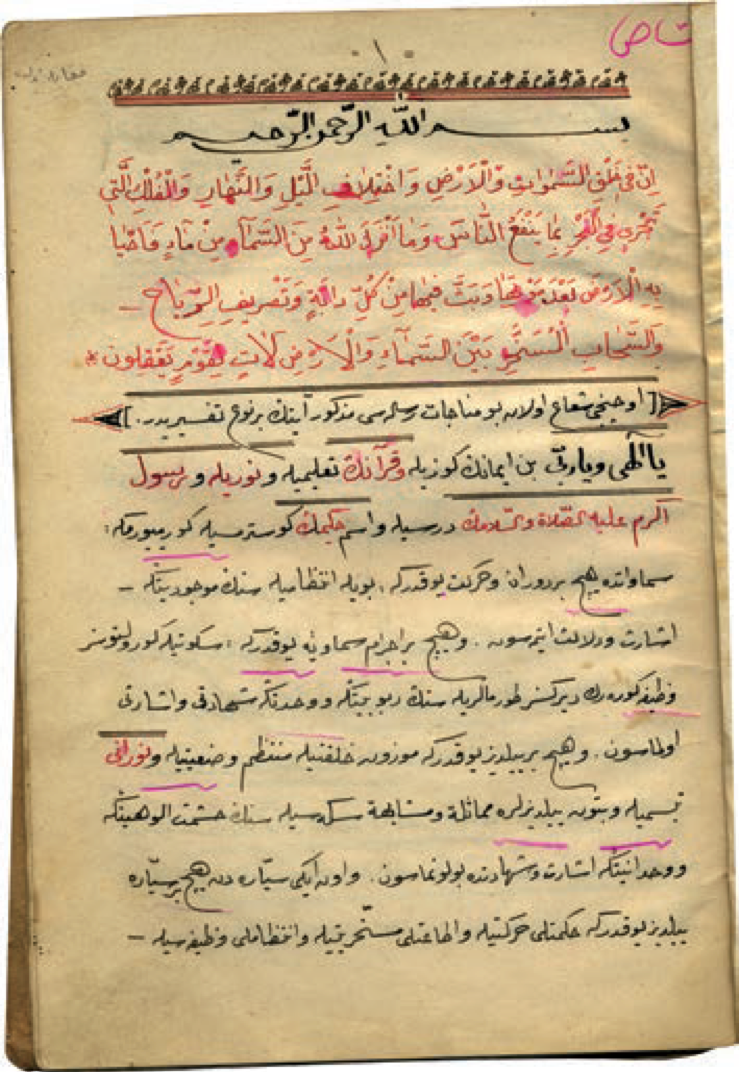 ١
بسم الله الرّحمن الرّحيم
اِنَّ فِى خَلْقِ السَّمٰوَاتِ وَالْاَرْضِ وَاخْتِلَافِ الَّيْلِ وَالنَّهَارِ وَالْفُلْكِ الَّتِى
تَجْرِى فِى الْبَحْرِ بِمَا يَنْفَعُ النَّاسَ وَمَا اَنْزَلَ اللّٰهُ مِنَ السَّمَاءِ مِنْ مَاءٍ فَاَحْيَا
بِهِ الْاَرْضَ بَعْدَ مَوْتِهَا وَبَثَّ فِيهَا مِنْ كُلِّ دَابَّةٍ وَتَصْرِيفِ الرِّيَاحِ –
وَالسَّحَابِ الْمُسَخَّرِ بَيْنَ السَّمَاءِ وَالْاَرْضِ لَاٰيَاتٍ لِقَوْمٍ يَعْقِلُونَ *
[ اوچنجى شعاع اولان بو مناجات رساله‌سى مذكور آيتك بر نوع تفسيريدر. ]
يا الٰهى ويا ربّى بن ايمانك كوزيله وقرآنك تعليميله ونوريله ورسول
اكرم عليه الصّلاة والسّلامك درسيله واسم حكيمك كوسترمسيله كورييورمكه:
سماواتده هيچ بر دوران وحركت يوقدركه، بويله انتظاميله سنك موجوديتكه –
اشارت ودلالت ايتمسون. وهيچ بر اجرام سماويه يوقدركه: سكوتيله كورولتوسز
وظيفه كوره‌رك ديركسز طورمالريله سنك ربوبيتكه ووحدتكه شهادتى واشارتى
اولماسون. وهيچ بر ييلديز يوقدركه موزون خلقتيله منتظم وضعيتيله ونورانى
تبسميله وبتون ييلديزلره مماثلة ومشابهة سكه‌سيله سنك حشمت الوهيتكه
ووحدانيتكه اشارت وشهادتده بولونماسون. واون ايكى سيّاره‌دن هيچ بر سيّاره
ييلديز يوقدركه حكمتلى حركتيله واطاعتلى مسخّريتيله وانتظاملى وظيفه‌سيله –